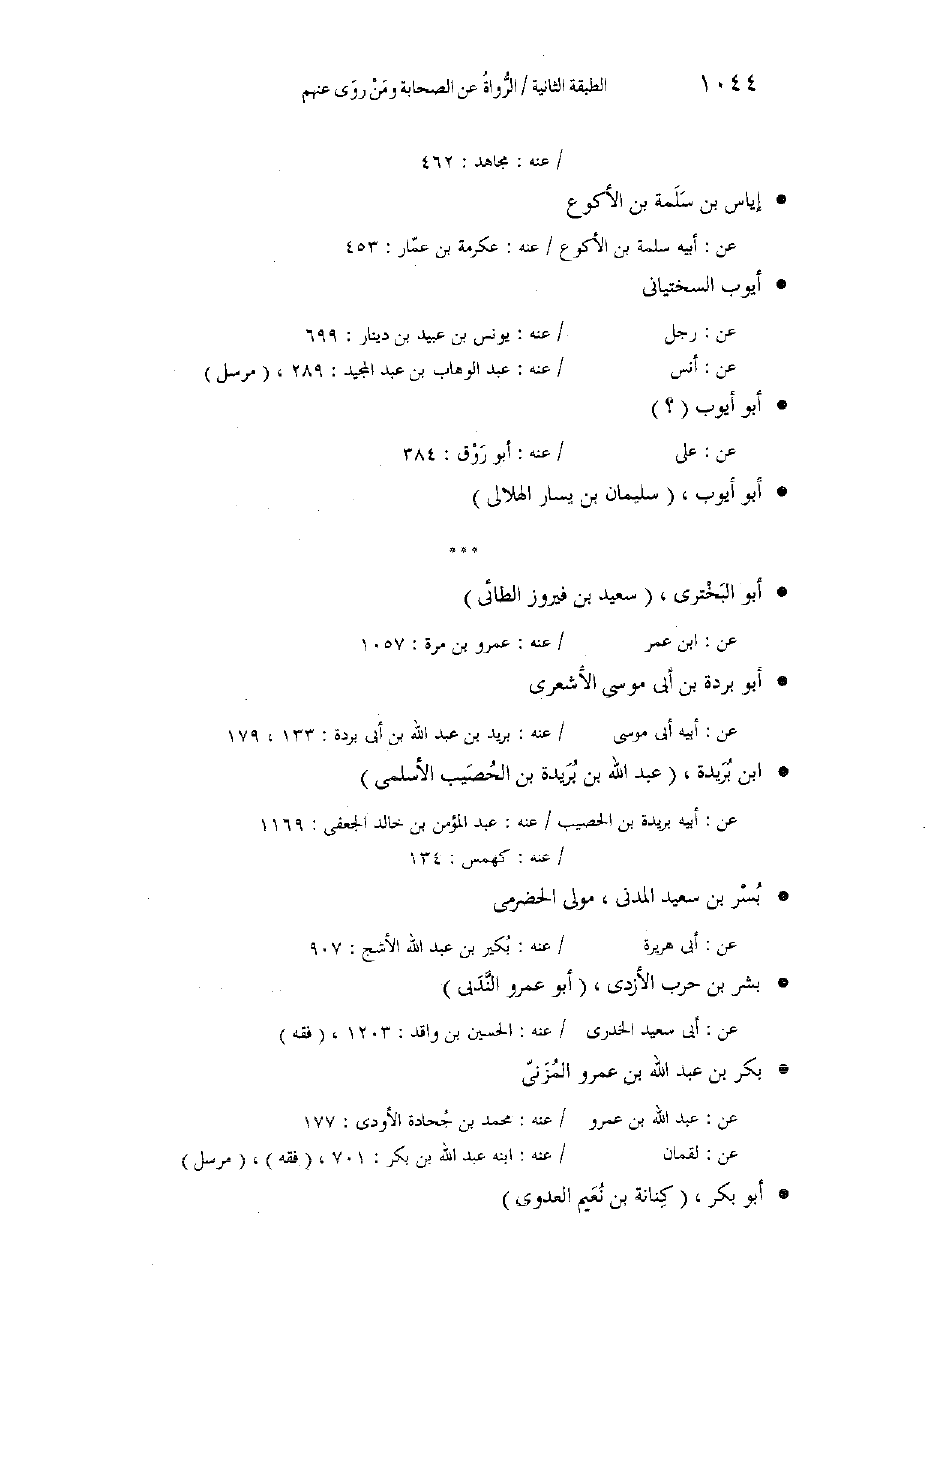 ١٠٤٤ الطبقة الثانية / الرُّواةُ عن الصحابة ومَنْ روَى عنهم
/ عنه : مجاهد : ٤٦٢
• إياس بن سَلَمة بن الأكوع
عن : أبيه سلمة بن الأكوع / عنه : عكرمة بن عمّار : ٤٥٣
• أيوب السختيانى
عن : رجل / عنه : يونس بن عبيد بن دينار : ٦٩٩
عن : أنس / عنه : عبد الوهاب بن عبد المجيد : ٢٨٩ ، ( مرسل )
• أبو أيوب ( ؟ )
عن : على / عنه : أبو رَوْق : ٣٨٤
• أبو أيوب ، ( سليمان بن يسار الهلالى )
***
• أبو البَخْترى ، ( سعيد بن فيروز الطائى )
عن : ابن عمر / عنه : عمرو بن مرة : ١٠٥٧
• أبو بردة بن أبى موسى الأشعرى
عن : أبيه أبى موسى / عنه : بريد بن عبد الله بن أبى بردة : ١٣٣ ، ١٧٩
• ابن بُرَيدة ، ( عبد الله بن بُرَيدة بن الحُصَيب الأسلمى )
عن : أبيه بريدة بن الحصيب / عنه : عبد المؤمن بن خالد الجعفى : ١١٦٩
/ عنه : كهمس : ١٣٤
• بُسْر بن سعيد المدنى ، مولى الحضرمى
عن : أبى هريرة / عنه : بُكير بن عبد الله الأشج : ٩٠٧
• بشر بن حرب الأزدى ، ( أبو عمرو النَّدَبى )
عن : أبى سعيد الخدرى / عنه : الحسين بن واقد : ١٢٠٣ ، ( فقه )
• بكر بن عبد الله بن عمرو المُزَنىّ
عن : عبد الله بن عمرو / عنه : محمد بن جُحادة الأودى : ١٧٧
عن : لقمان / عنه : ابنه عبد الله بن بكر : ٧٠١ ، ( فقه ) ، ( مرسل )
• أبو بكر ، ( كِنانة بن نُعَيم العدوى )